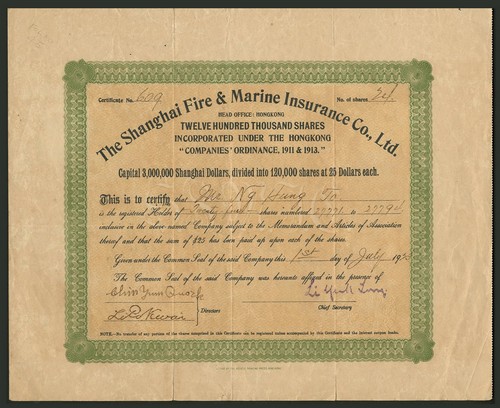 Certificate No. 659 No. of shares 24.
The Shanghai Fire & Marine Insurance Co., Ltd.
HEAD OFFICE: HONGKONG
TWELVE HUNDRED THOUSAND SHARES
INCORPORATED UNDER THE HONGKONG
"COMPANIES' ORDINANCE, 1911 & 1913."
Capital 3,000,000 Shanghai Dollars, divided into 120,000 shares at 25 Dollars each.
This is to certify that Mr. Ng Hung To
is the registered Holders of Twenty four shares numbered 27771 to 27794
inclusive on the above named Company subject to the Memorandum and Articles of Association
thereof and that the sum of $25 has been paid up upon each of the shares.
Given under the Common Seal of the said Company this 1st day of July 1923
The Common Seal of the said Company was hereunto affixed in the presence of
Directors
Chief Secretary
NOTE.—No transfer of any portion of the shares comprised in this Certificate can be registered unless accompanied by this Certificate and the interim coupon books.